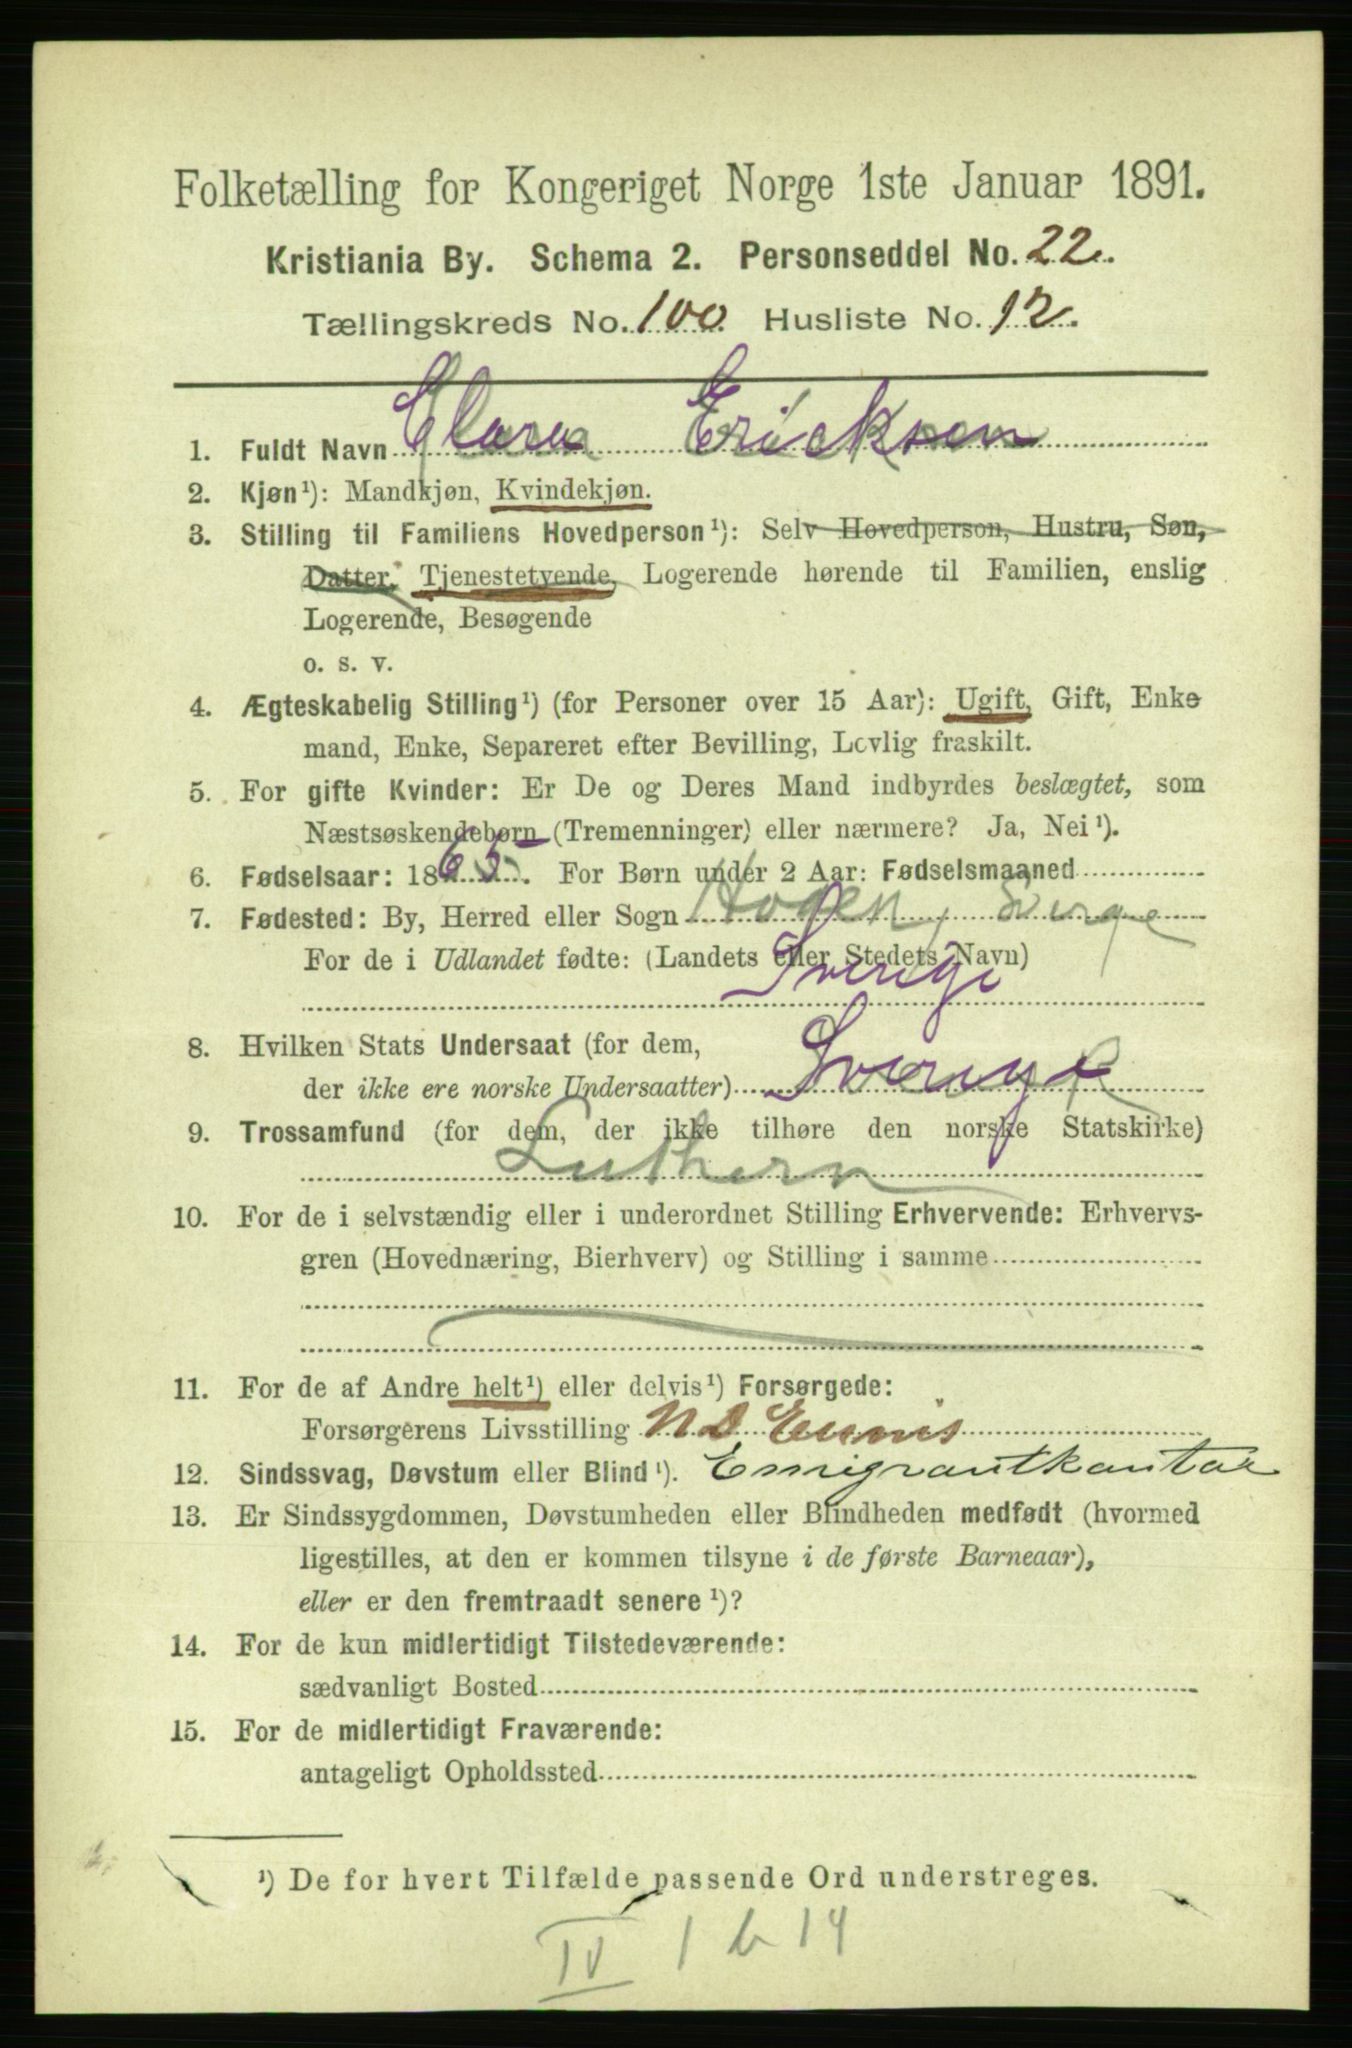 Folketælling for Kongeriget Norge 1ste Januar 1891.
Kristiania By. Schema 2. Personseddel No. 22.
Tællingskreds No. 100 Husliste No. 12.
1. Fuldt Navn Clara Ericksen
2. Kjøn¹): Mandkjøn, Kvindekjøn.
3. Stilling til Familiens Hovedperson¹): Selv Hovedperson, Hustru, Søn,
Datter, Tjenestetyende, Logerende hørende til Familien, enslig
Logerende, Besøgende
o. s. v.
4. Ægteskabelig Stilling¹) (for Personer over 15 Aar): Ugift, Gift, Enke-
mand, Enke, Separeret efter Bevilling, Lovlig fraskilt.
5. For gifte Kvinder: Er De og Deres Mand indbyrdes beslægtet, som
Næstsøskendebørn (Tremenninger) eller nærmere? Ja, Nei¹).
6. Fødselsaar: 1865. For Børn under 2 Aar: Fødselsmaaned
7. Fødested: By, Herred eller Sogn
For de i Udlandet fødte: (Landets eller Stedets Navn)
Sverige
8. Hvilken Stats Undersaat (for dem,
der ikke ere norske Undersaatter) Sverige
9. Trossamfund (for dem, der ikke tilhøre den norske Statskirke)
Luthern
10. For de i selvstændig eller i underordnet Stilling Erhvervende: Erhvervs-
gren (Hovednæring, Bierhverv) og Stilling i samme
11. For de af Andre helt¹) eller delvis¹) Forsørgede:
Forsørgerens Livsstilling
12. Sindssvag, Døvstum eller Blind¹). Emigrantkantor
13. Er Sindssygdommen, Døvstumheden eller Blindheden medfødt (hvormed
ligestilles, at den er kommen tilsyne i de første Barneaar),
eller er den fremtraadt senere¹)?
14. For de kun midlertidigt Tilstedeværende:
sædvanligt Bosted
15. For de midlertidigt Fraværende:
antageligt Opholdssted
¹) De for hvert Tilfælde passende Ord understreges.
IV 1 b 14